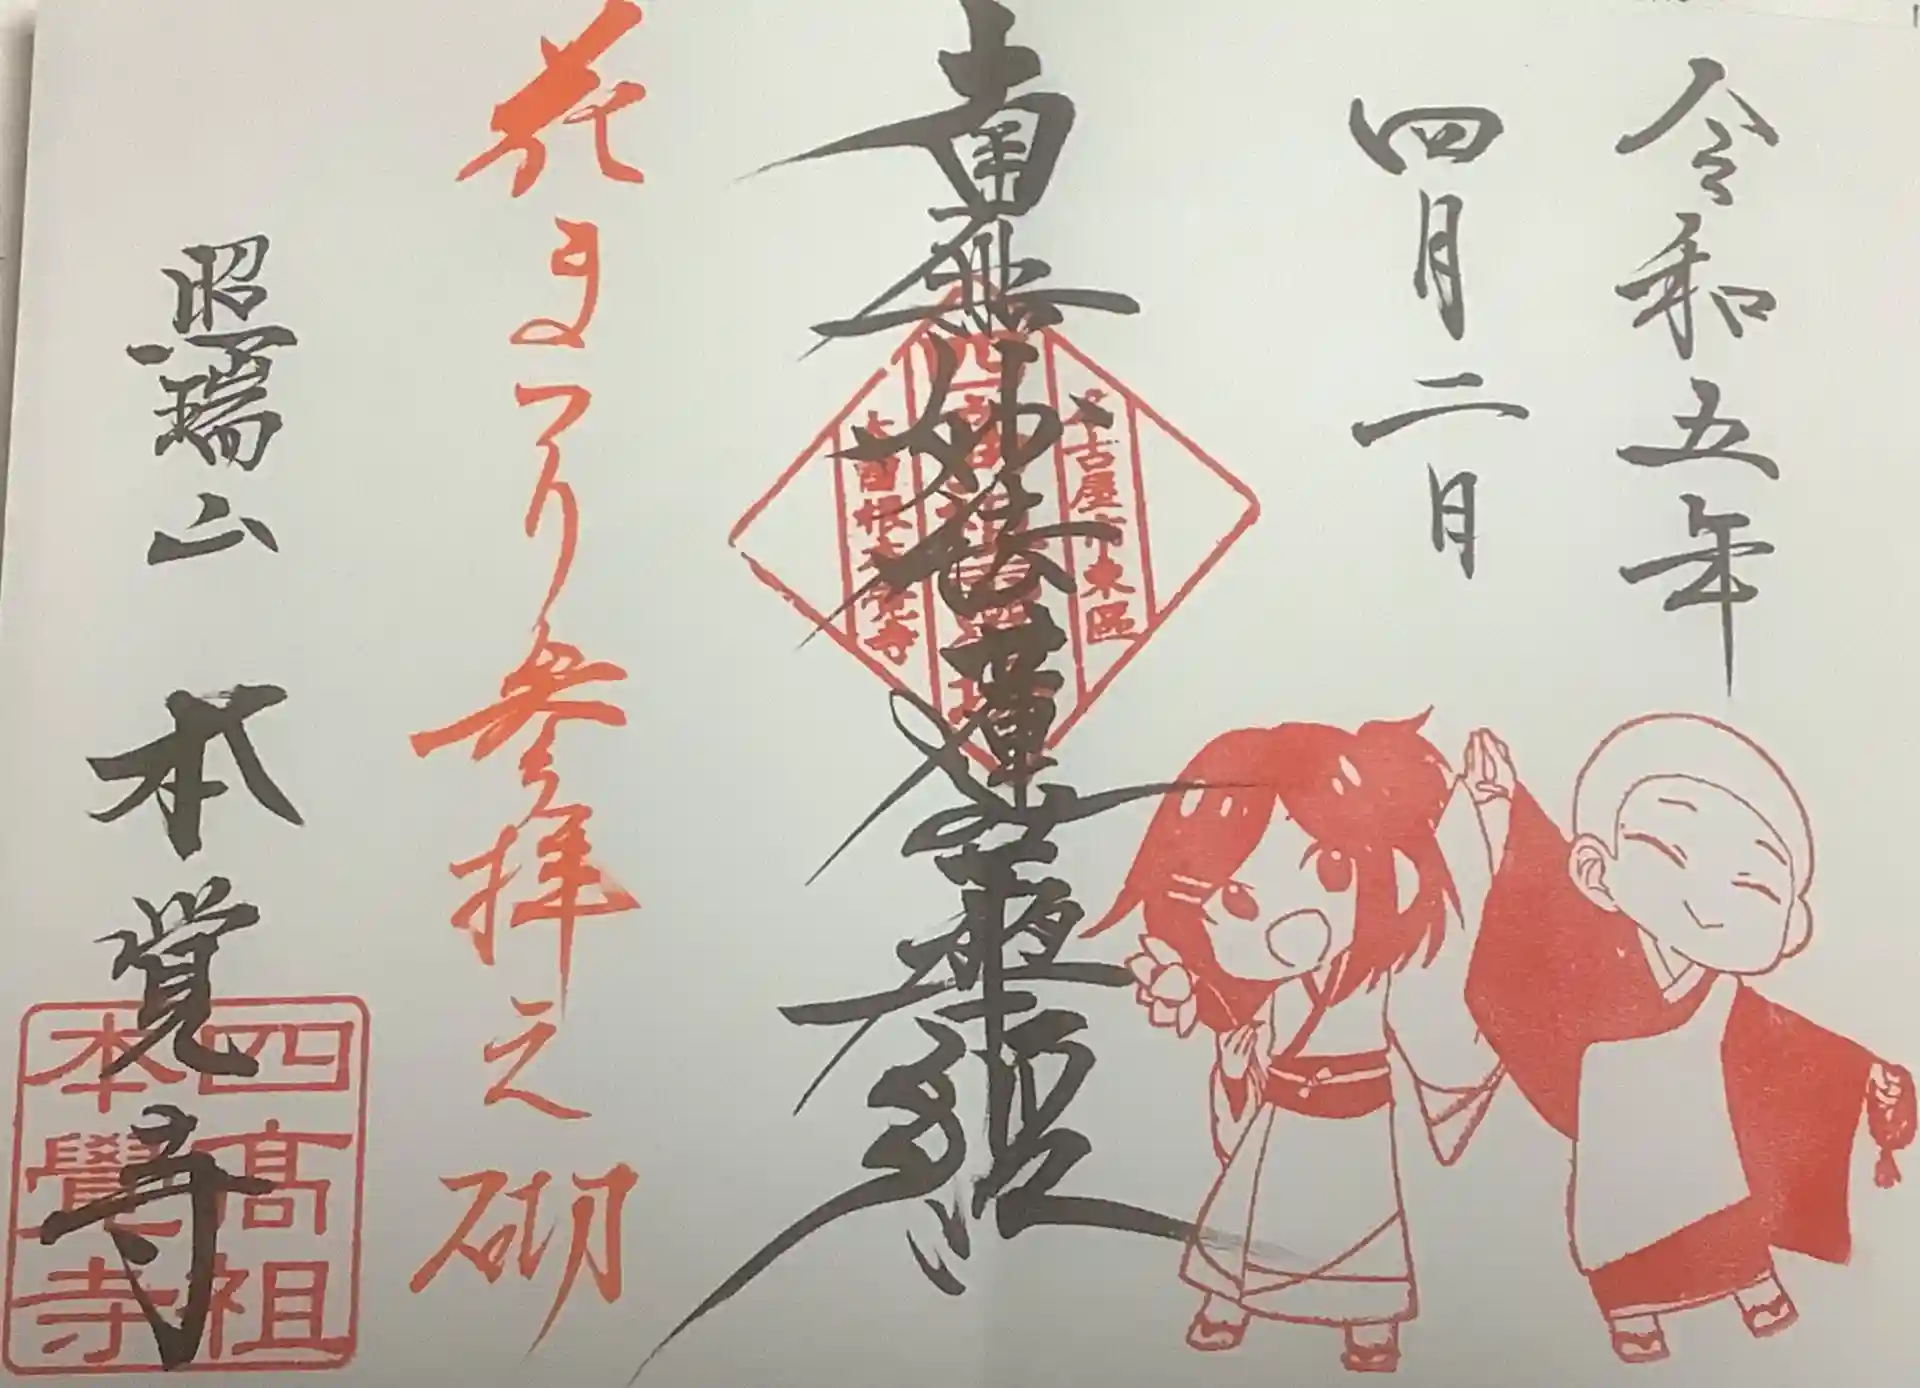 令和五年
四月二日
南無妙法蓮華経
名古屋市東區
大曽根本覚寺
花まつり参拝之砌
照瑞山 本覚寺
四高祖
本覺寺